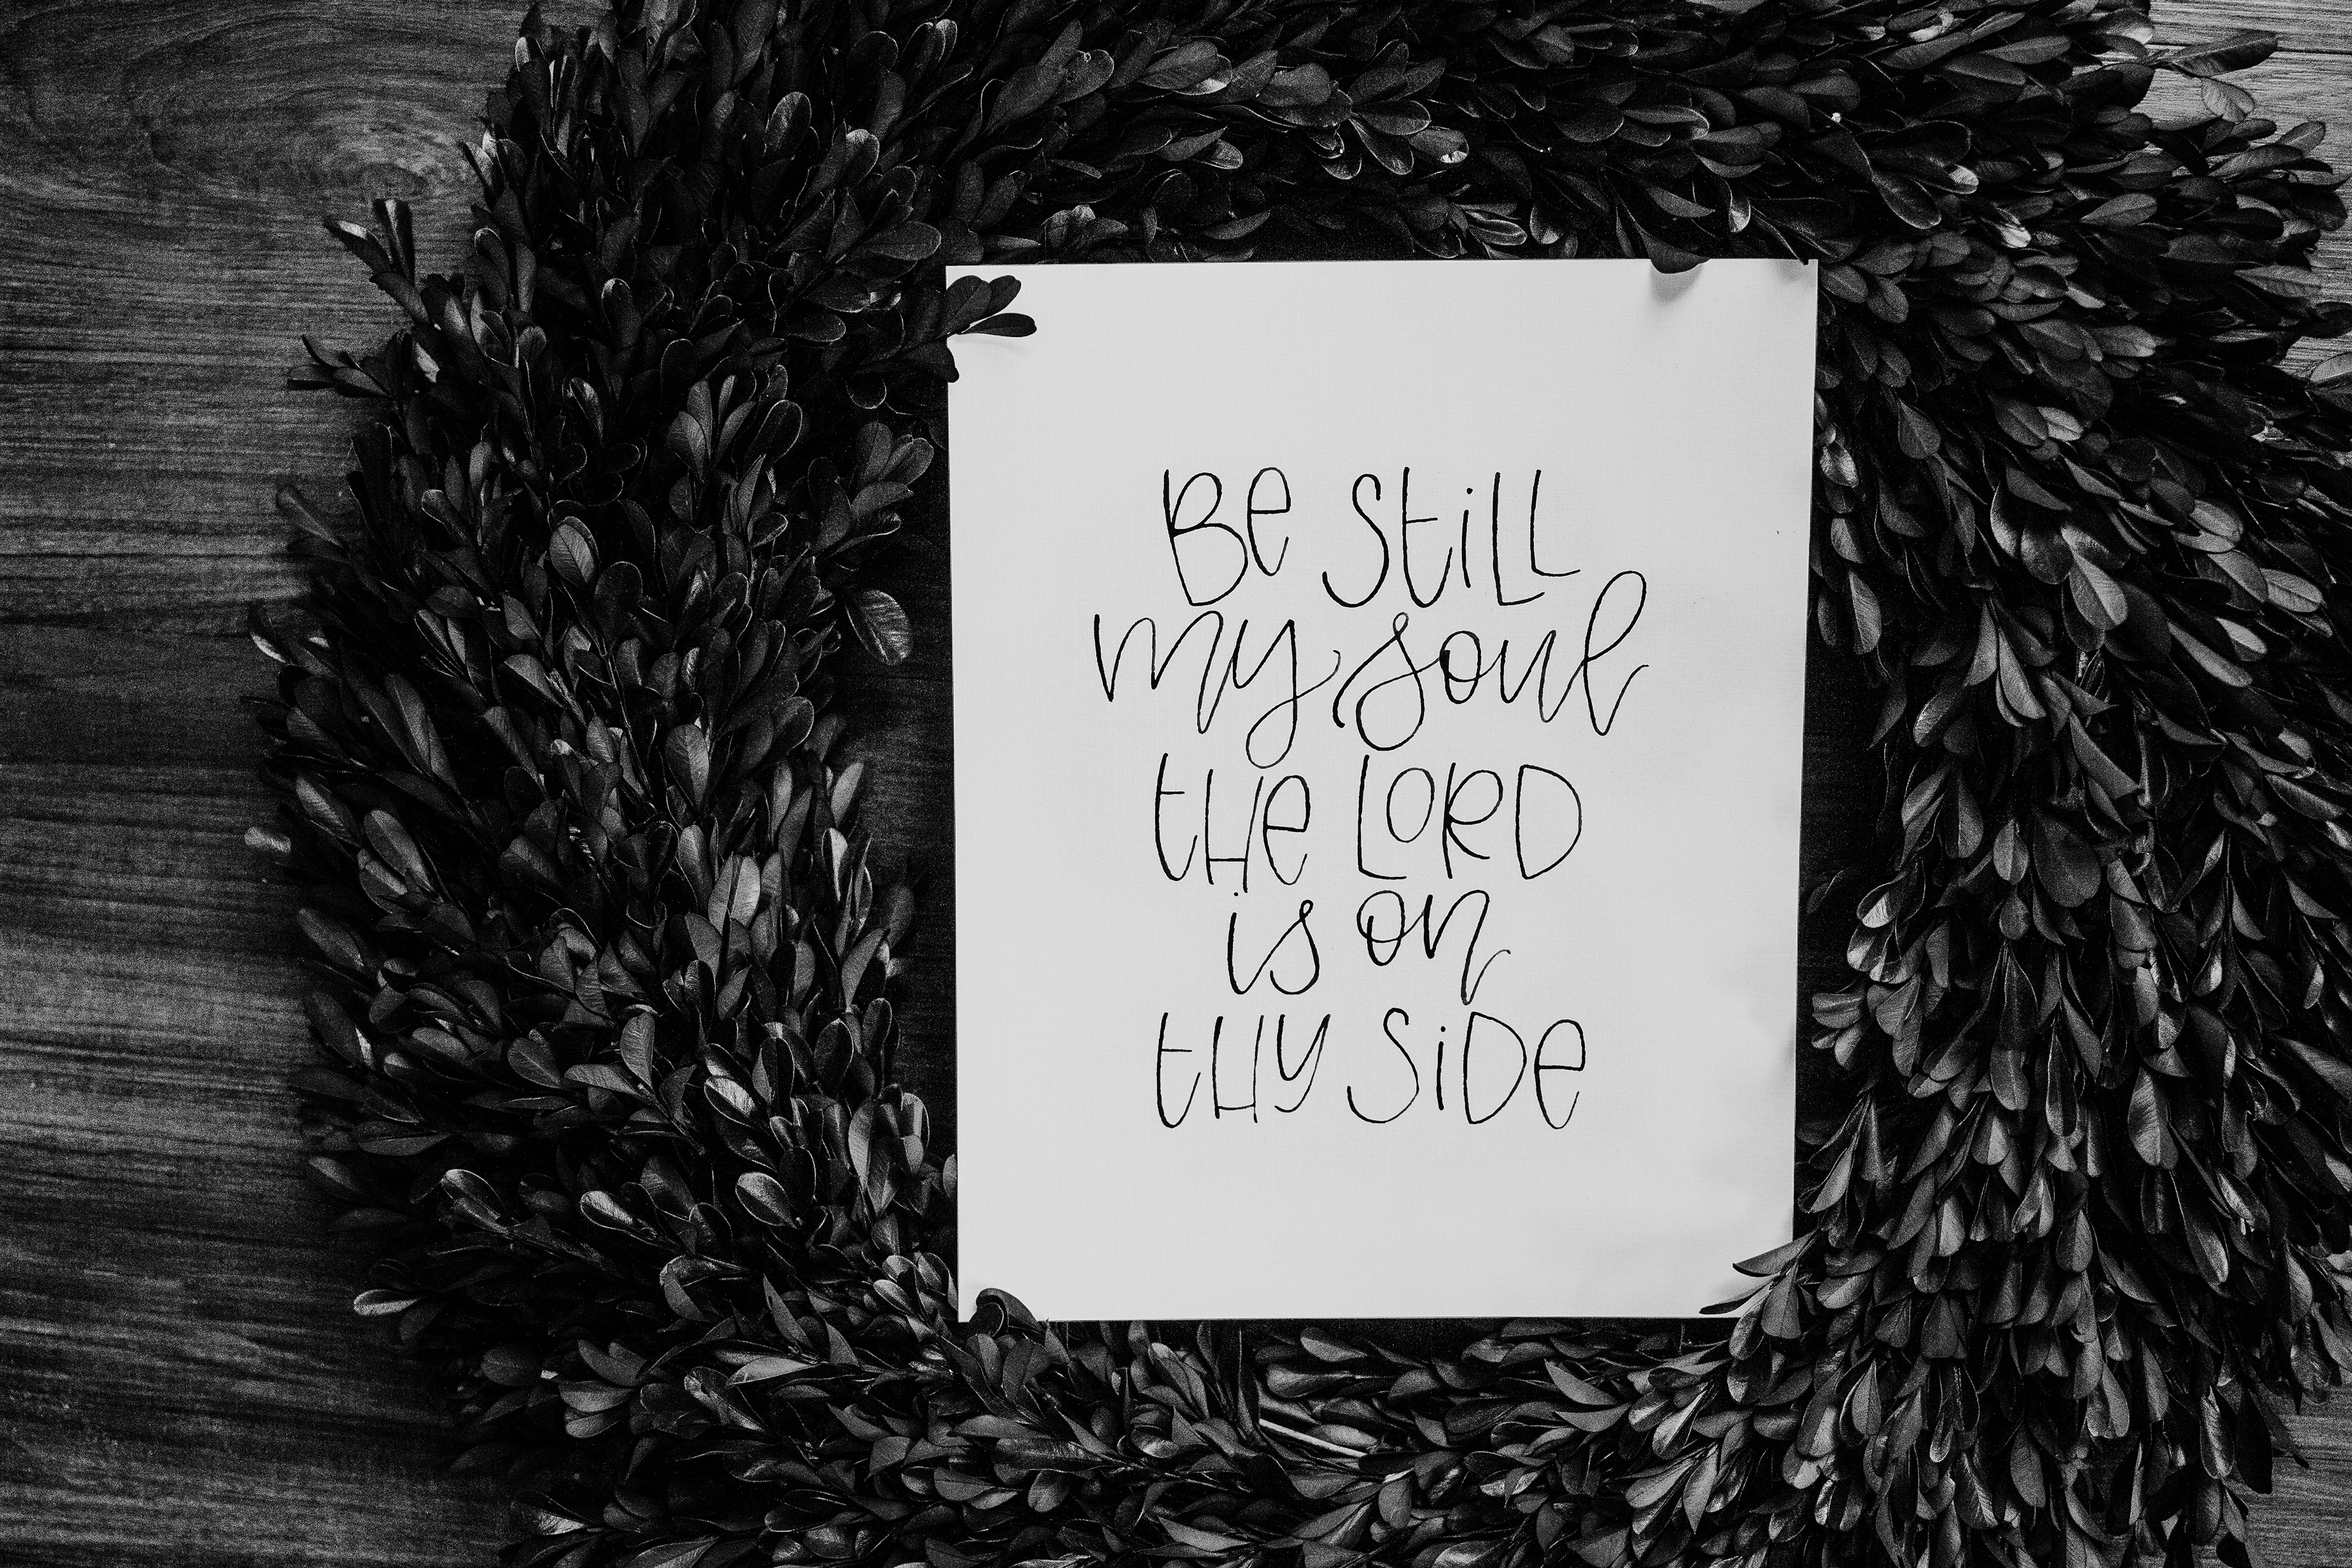 Be still
my soul
the LORD
is on
thy side